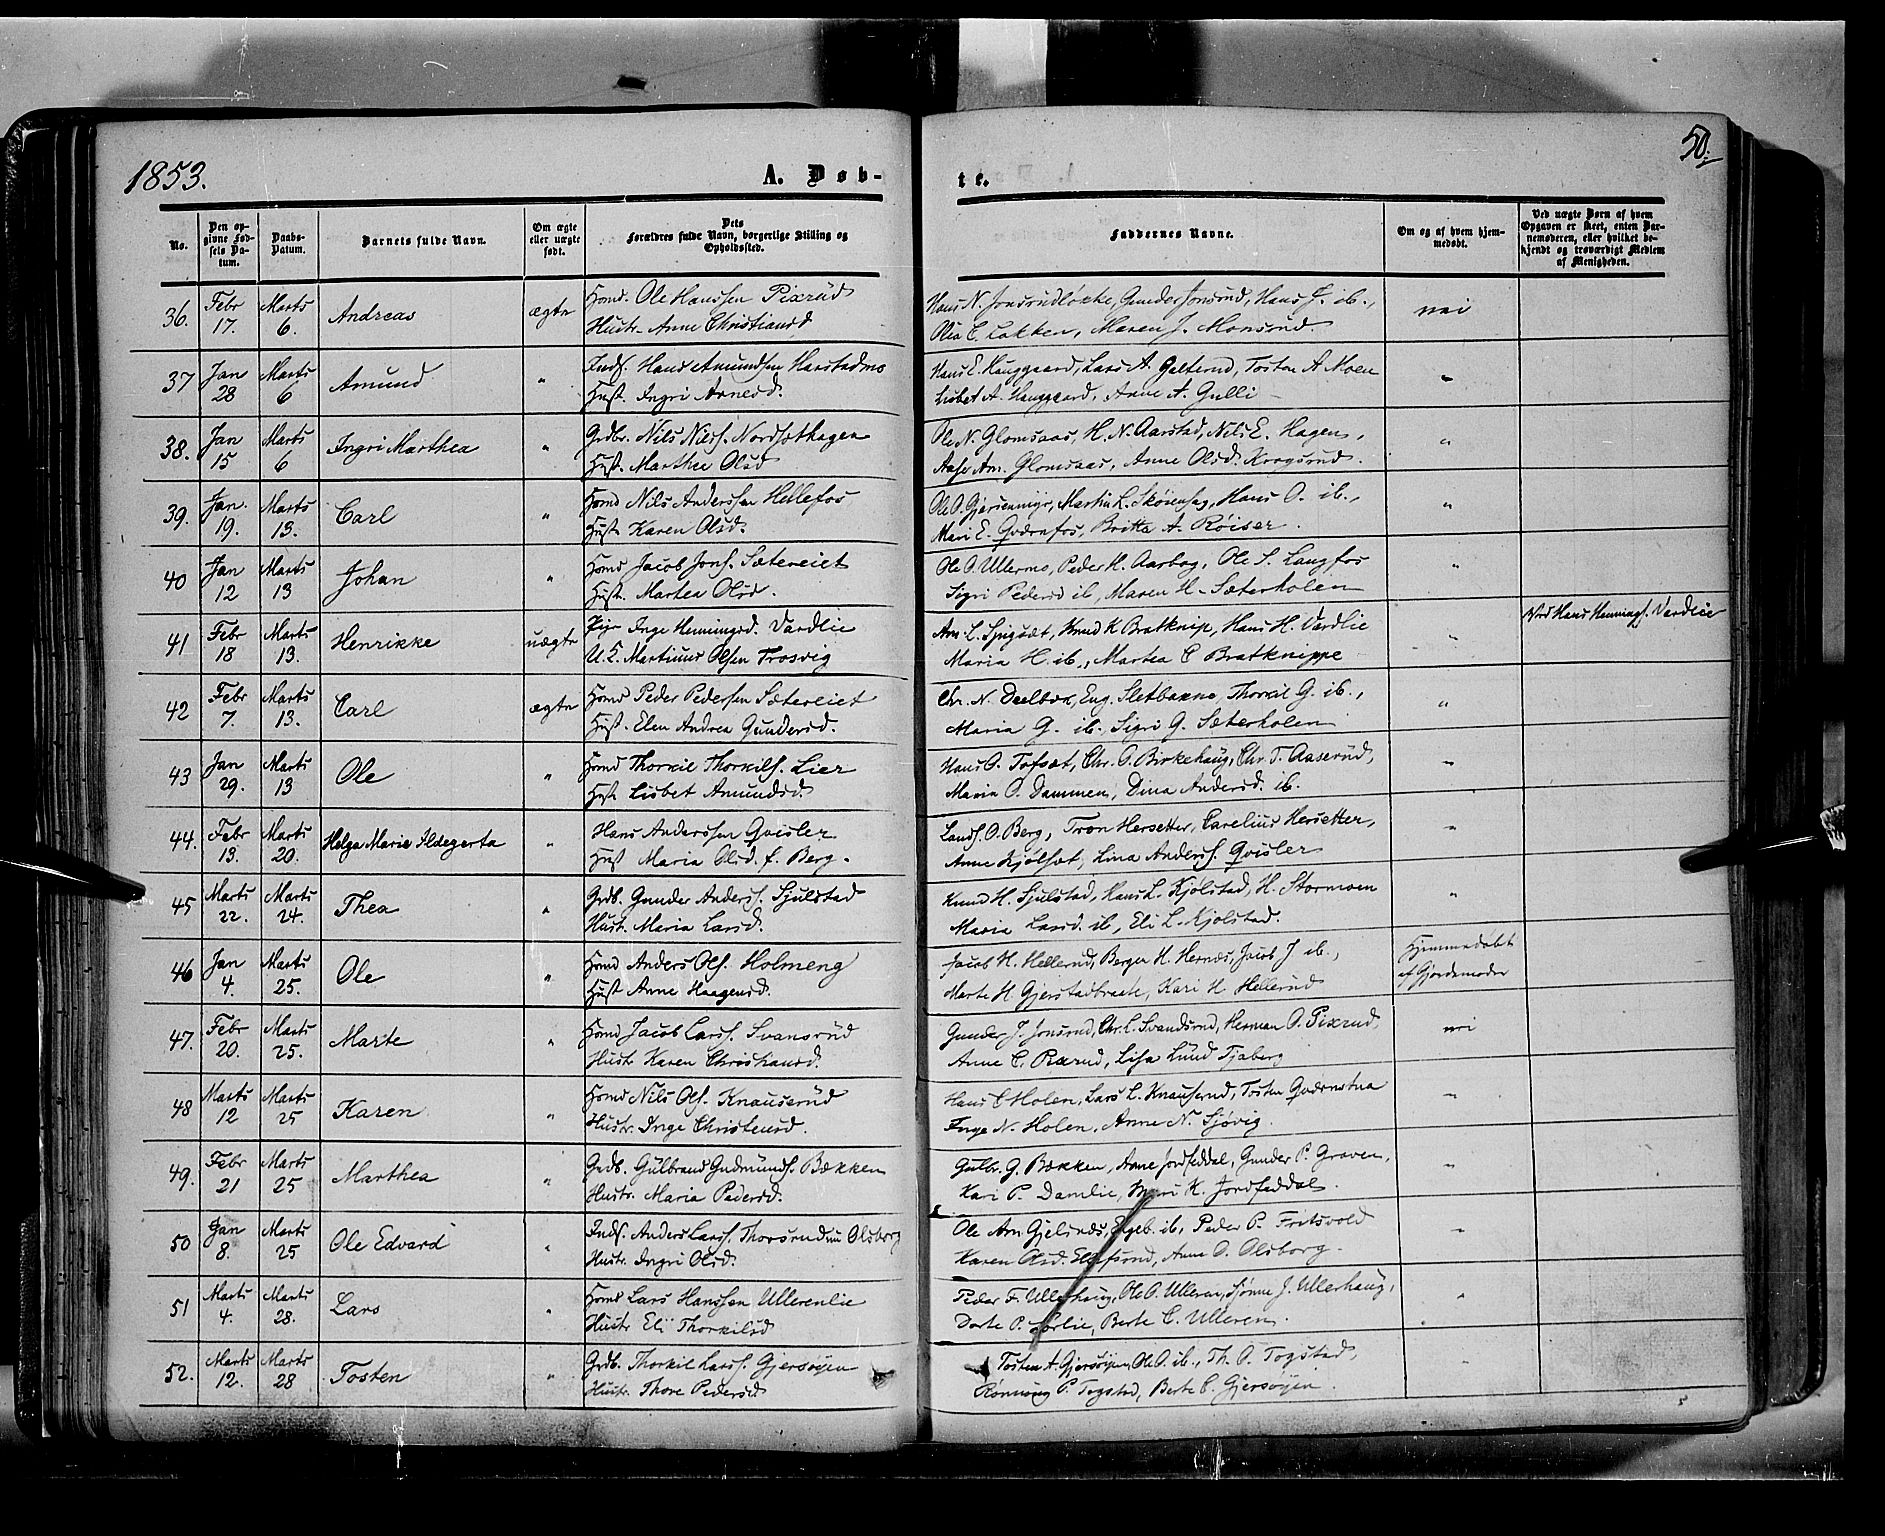 1853.
A. Døb-
te.
50.
No.
Den op-
givne Fød-
sels Da-
tum.
Daabs-
Datum.
Barnets fulde Navn.
Om ægte
eller uægte
født.
Dets
Forældres fulde Navn, borgerlige Stilling og
Opholdssted.
Faddernes Navne.
Om og af hvem hjem-
medøbt.
Ved uægte Børn af hvem
Opgaven er skeet, enten Bar-
nemoderen, eller hvilket be-
kjendt og troværdigt Medlem
af Menigheden.
36. Febr 17. Marts 6. Andreas ægte
Hmd. Ole Hanssen Pixrud
Hustr. Anne Christiansd
Hans N. Jonsrudløkke, Gunder Jonsrud, Hans J. ib.,
Olea C. Løkken, Maren J. Monsrud.
nei
37 Jan 28 Marts 6 Amund "
Inds. Hans Amundsen Harstadmo
Hust. Ingri Arnesd.
Hans E. Hauggaard, Lars A. Galterud, Tosten A Moen
Lisbet A. Hauggaard, Anne A. Gulli
"
38. Jan 15 Marts 6 Ingri Marthea "
Grdbr. Nils Nilss. Nordsethagen
Hust. Marthe Olsd
Ole N. Glomsaas, H. N. Aarstad, Nils E. Hagen,
Aase Am. Glomsaas, Anne Olsd. Krogsrud.
"
39. Jan. 19. Marts 13. Carl "
Hmd Nils Anderssen Hellefos
Hust Karen Olsd.
Ole O. Martin L. Hans O. ib.,
Mari E. Gudrnfos, Britta A. Røiser.
"
40 Jan 12 Marts 13 Johan "
Hmd Jacob Jons. Sætereiet
Hust. Martea Olsd.
Ole O. Ullermo, Peder H. Aarbog, Ole S. Langfos
Sigri Pedersd ib, Maren H. Sæterholen
"
41 Febr 18 Marts 13. Henrikke uægte
Pige Inge Henningsd. Vardlie
U. K. Martinus Olsen Trosvig
Am. L. Knud K Bratknip, Hans H. Vardlie
Maria H. ib., Martea C Bratknippe
"
Ved Hans Hennings. Vardlie
42 Febr 7. Marts 13. Carl ægte
Hmd Peder Pedersen Sætereiet
Hust. Elen Andrea Gundersd.
Chr. N. Deelbæk, Eng. Sletbakne, Thorkil G. ib.,
Maria G. ib., Sigri G. Sæterholen
"
43 Jan 29. Marts 13 Ole "
Hmd Thorkil Thorkils. Lier
Hust. Lisbet Amundsd.
Hans O. Tofsæt, Chr. O. Birkehaug, Chr. T. Aaserud,
Maria O. Dammen, Dina Andersd. ib.
"
44. Febr 13. Marts 20. Helga Marie Ildegerta "
Hans Anderssen Qvisler
Hust Maria Olsd. f. Berg.
O. Berg, Tron Hersetter, Carelius Hersetter,
Anne Kjølsæt, Lina Anderss. Qvisler
"
45 Marts 22. Marts 24. Thea "
Grdb. Gunder Anderss. Sjulstad
Hust. Maria Larsd.
Knud H. Sjulstad, Hans L. Kjølstad, H. Stormoen
Maria Larsd. ib, Eli L. Kjolstad.
"
46 Jan 4. Marts 25. Ole "
Hmd Anders Ols. Holmeng
Hust Anne Haagensd.
Jacob H. Hellerud, Berger H. Hernæs, Jacob J ib.,
Marte H. Gjerstadbraate, Kari H Hellerud
Hjemmedøbt
af Gjordemoder
47. Febr 20. Marts 25. Marte "
Hmd Jacob Larss. Svansrud
Hustr Karen Christiansd.
Gunder J. Jonsrud, Chr. L. Svandsrud, Herman O. Pixrud,
Anne C. Pixrud, Lisa Lund Tjaberg
nei
48 Marts 12 Marts 25 Karen "
Hmd Nils Ols. Knauserud
Hustr. Inge Christensd.
Hans C Holen, Lars L. Knauserud, Tosten Gudrnstua
Inge N. Holen, Anne N. Sjøvig.
"
49. Febr 21 Marts 25 Marthea "
Grdb. Gulbrand Gudmunds. Bækken
Hustr. Maria Pedersd.
Gulbr. G. Bækken, Arne Jordfaldal, Gunder P. Graven,
Kari P. Damlie, Mari K. Jordfaldal.
"
50 Jan 8. Marts 25 Ole Edvard "
Inds. Anders Larss. Olsborg
Hustr. Ingri Olsd.
Ole Am. Gjelsnes, Engeb. ib., Peder P. Fritsvold
Karen Olsd. Anne O. Olsborg.
"
51 Marts 4. Marts 28. Lars "
Hmd Lars Hanssen Ullerenlie
Hustr Eli Thorkilsd
Peder F. Ullerhaug, Ole O. Ulleren, Sjønne J. Ullerhaug,
Dorte P. Berte C. Ulleren.
"
52. Marts 12. Marts 28 Tosten "
Grdb. Thorkil Larss. Gjersøyen
Hustr. Thore Pedersd
Tosten A. Gjersøyen, Ole O. ib., Th. O. Togstad,
Rønnaug P. Togstad, Berte C. Gjersøyen.
"